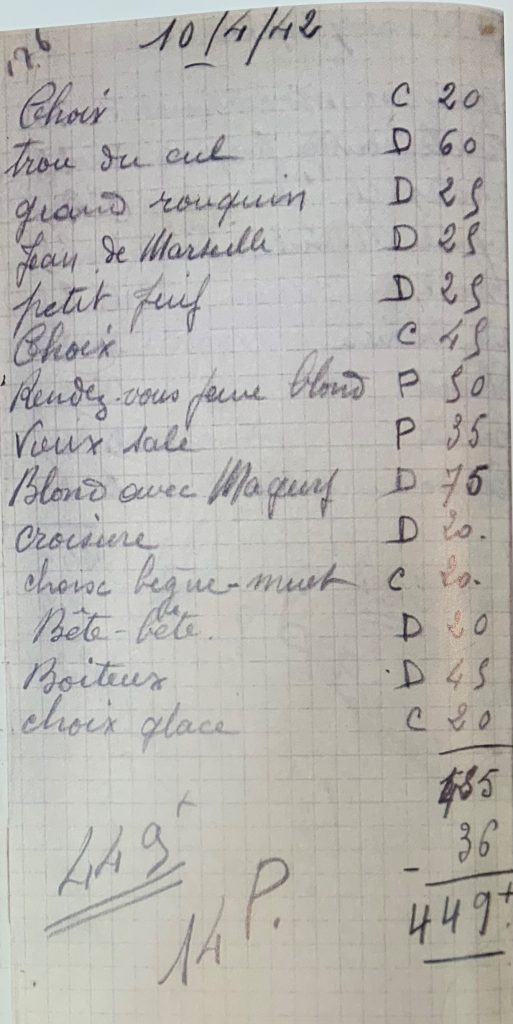 17.6
10/4/42
Choix C 20
trou du cul D 60
grand rouquin D 25
Jean de Marseille D 25
petit juif D 25
Choix C 45
Rendez-vous jeune blond P 50
Vieux sale P 35
Blond avec D 75
Croisière D 20.
choix bègue-muet C 20.
Bête-bête. D 20
Boiteux D 45
choix glace C 20
485
- 36
449+
449+
14 P.